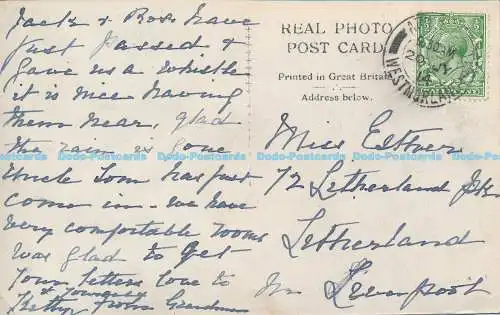 Jack & Ross have
just passed &
gave us a whistle
it is nice having
them near, glad
the rain is gone
Uncle Tom has just
come in - we have
very comfortable rooms
was glad to get
your letters love to
Betty & yourself from Grandma
REAL PHOTO
POST CARD
Printed in Great Britain
Address below.
WESTMORLAND
Miss Esther
72 Litherland Pk
Litherland
Nr Liverpool
Dodo-Postcards Dodo-Postcards Dodo-Postcards Dodo-Postcards Dodo-Postcards Dodo-Postcards